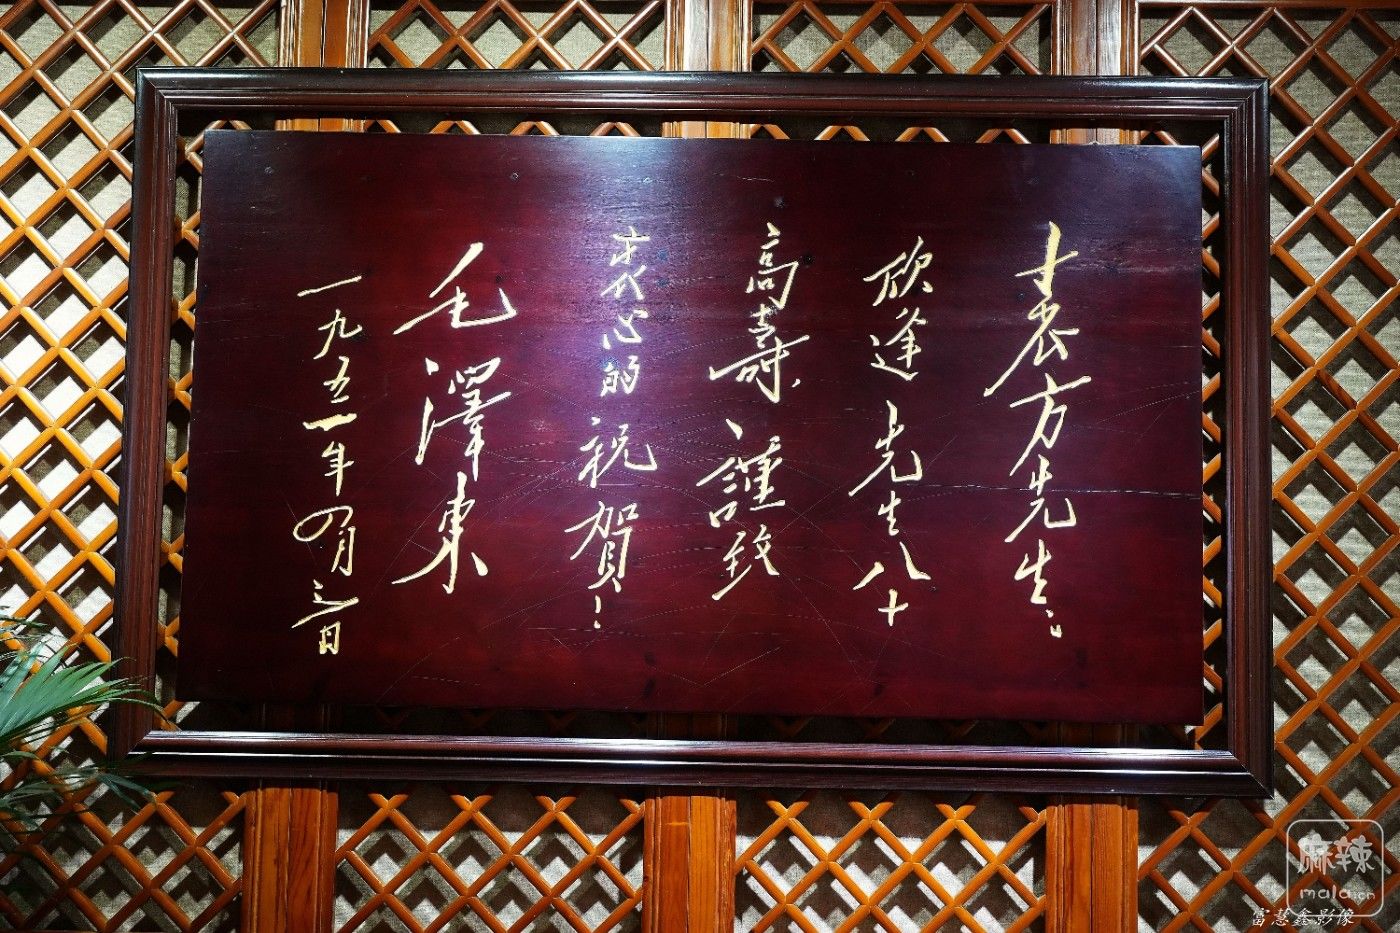 表方先生：
欣逢先生八十
高壽、謹致
衷心的祝賀！
毛澤東
一九五一年四月日
麻辣
mala.cn
富慧鑫影像